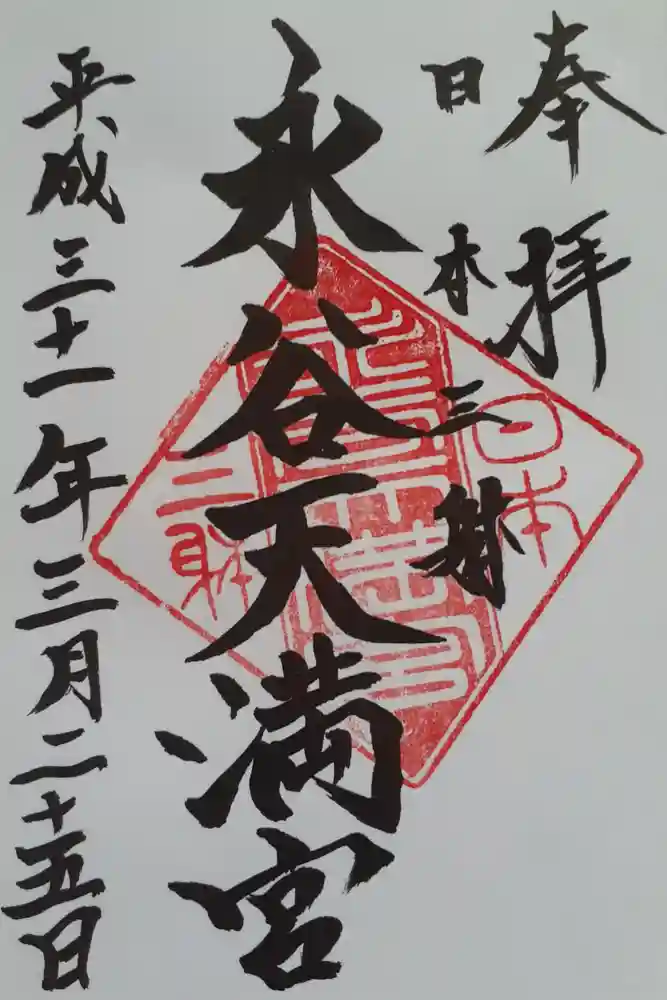 奉拝
日本三躰
永谷天満宮
平成三十一年三月二十五日
日本
三躰